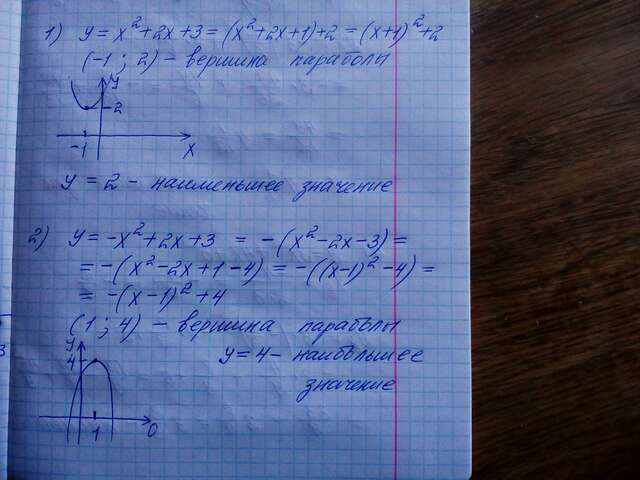 1) y = x² + 2x + 3 = (x² + 2x + 1) + 2 = (x+1)² + 2
(-1 ; 2) - вершина параболы
y
2
-1
x
y = 2 - наименьшее значение
2) y = -x² + 2x + 3 = -(x² - 2x - 3) =
= -(x² - 2x + 1 - 4) = -((x-1)² - 4) =
= -(x-1)² + 4
(1 ; 4) - вершина параболы
y
4
y = 4 - наибольшее
значение
1
0
3